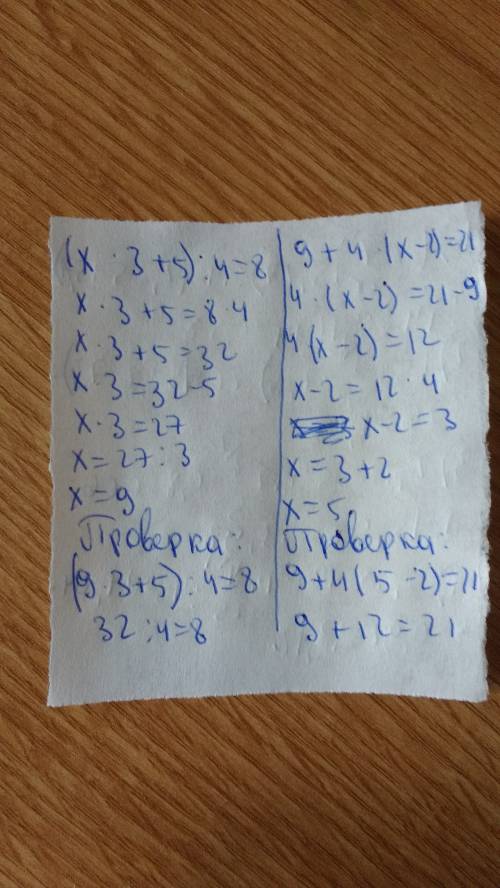 (x · 3 + 5) : 4 = 8
x · 3 + 5 = 8 · 4
x · 3 + 5 = 32
x · 3 = 32 - 5
x · 3 = 27
x = 27 : 3
x = 9
Проверка:
(9 · 3 + 5) : 4 = 8
32 : 4 = 8
9 + 4 · (x - 2) = 21
4 · (x - 2) = 21 - 9
4 (x - 2) = 12
x - 2 = 12 · 4
x - 2 = 3
x = 3 + 2
x = 5
Проверка:
9 + 4 (5 - 2) = 21
9 + 12 = 21